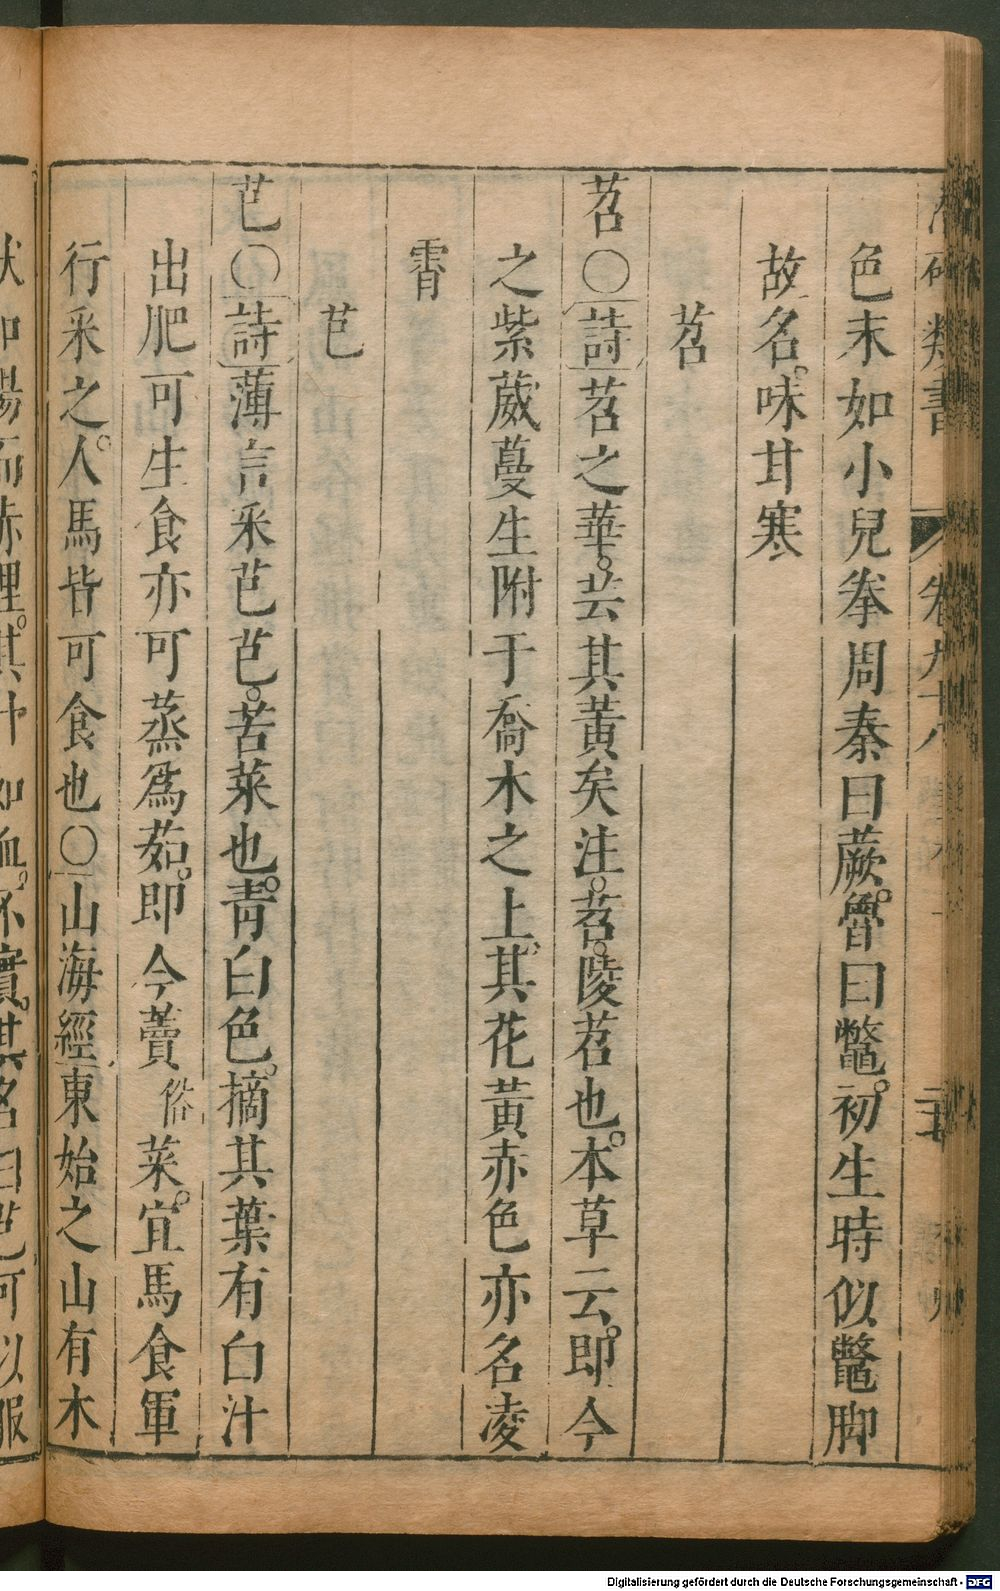 類書 卷九十八
色末如小兒拳周秦曰蕨。魯曰虌。初生時似鼈脚
故名。味甘寒
苕
苕〇詩苕之華。芸其黃矣注。苕。陵苕也。本草云。即今
之紫葳蔓生附于喬木之上。其花黃赤色亦名凌
霄
芑
芑〇詩薄言采芑芑。苦菜也。靑白色。摘其葉有白汁
出肥可生食亦可蒸爲茹。即今蕒俗菜。宜馬食軍
行采之。人馬皆可食也〇山海經東始之山有木
狀如楊而赤理。其汁如血。不實。其名曰芑可以服
Digitalisierung gefördert durch die Deutsche Forschungsgemeinschaft - DFG